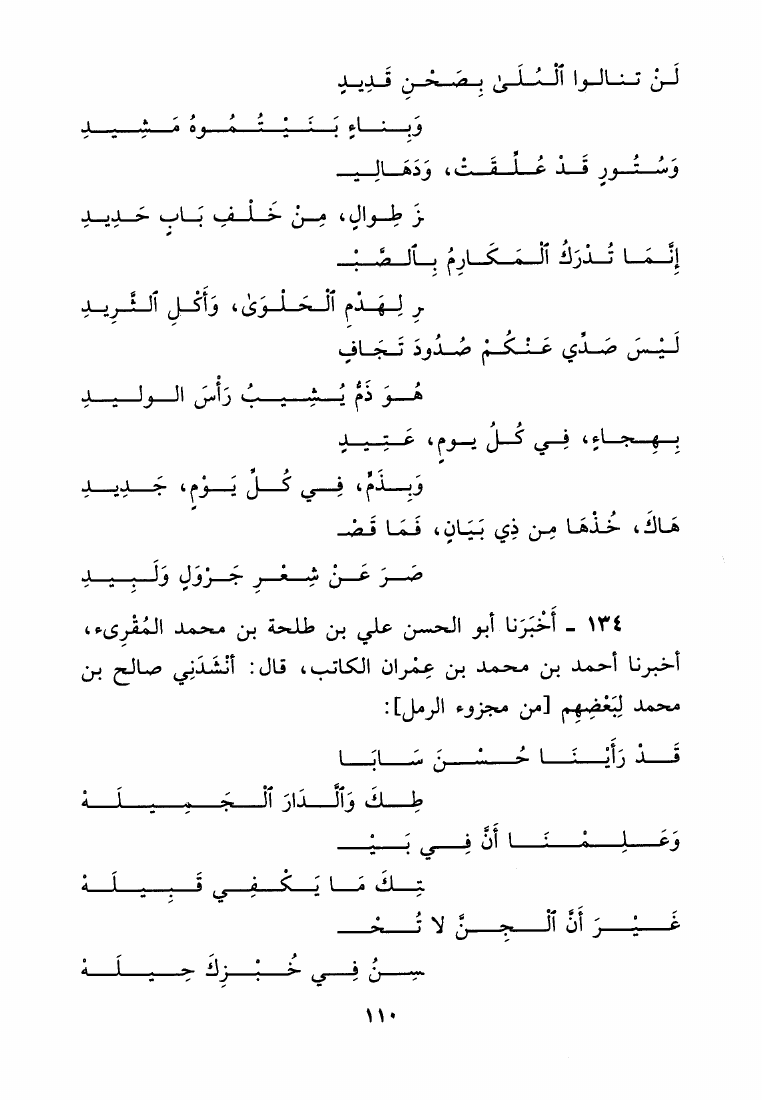 لَنْ تنالوا ٱلْعُلَىٰ بِصَحْنِ قَدِيدٍ
وَبِناءٍ بَنَيْتُمُوهُ مَشِيدِ
وَسُتُورٍ قَدْ عُلِّقَتْ، وَدَهَالِيـ
ـزَ طِوالٍ، مِنْ خَلْفِ بَابٍ حَدِيدِ
إِنَّمَا تُدْرَكُ ٱلْمَكَارِمُ بِٱلصَّبْـ
ـرِ لِهَذْمِ ٱلْحَلْوَىٰ، وَأَكْلِ ٱلثَّرِيدِ
لَيْسَ صَدِّي عَنْكُمْ صُدُودَ تَجَافٍ
هُوَ ذَمٌّ يُشِيبُ رَأْسَ الوليدِ
بِهِجاءٍ، فِي كُلِّ يومٍ، عَتِيدٍ
وَبِذَمٍّ، فِي كُلِّ يَوْمٍ، جَدِيدِ
هَاكَ، خُذْهَا مِن ذِي بَيَانٍ، فَمَا قَصْـ
ـصَرَ عَنْ شِعْرِ جَرْوَلٍ وَلَبِيدِ
١٣٤ - أَخْبَرَنا أبو الحسن علي بن طلحة بن محمد المُقْرِىء،
أخبرنا أحمد بن محمد بن عِمْران الكاتب، قال: أَنْشَدَنِي صالح بن
محمد لِبَعْضِهِم [من مجزوء الرمل]:
قَدْ رَأَيْنَا حُسْنَ سَابَا
طِكَ وَٱلدَّارَ ٱلْجَمِيلَهْ
وَعَلِمْنَا أَنَّ فِي بَيْـ
ـتِكَ مَا يَكْفِي قَبِيلَهْ
غَيْرَ أَنَّ ٱلْجِنَّ لا تُحْـ
ـسِنُ فِي خُبْزِكَ حِيلَهْ
١١٠